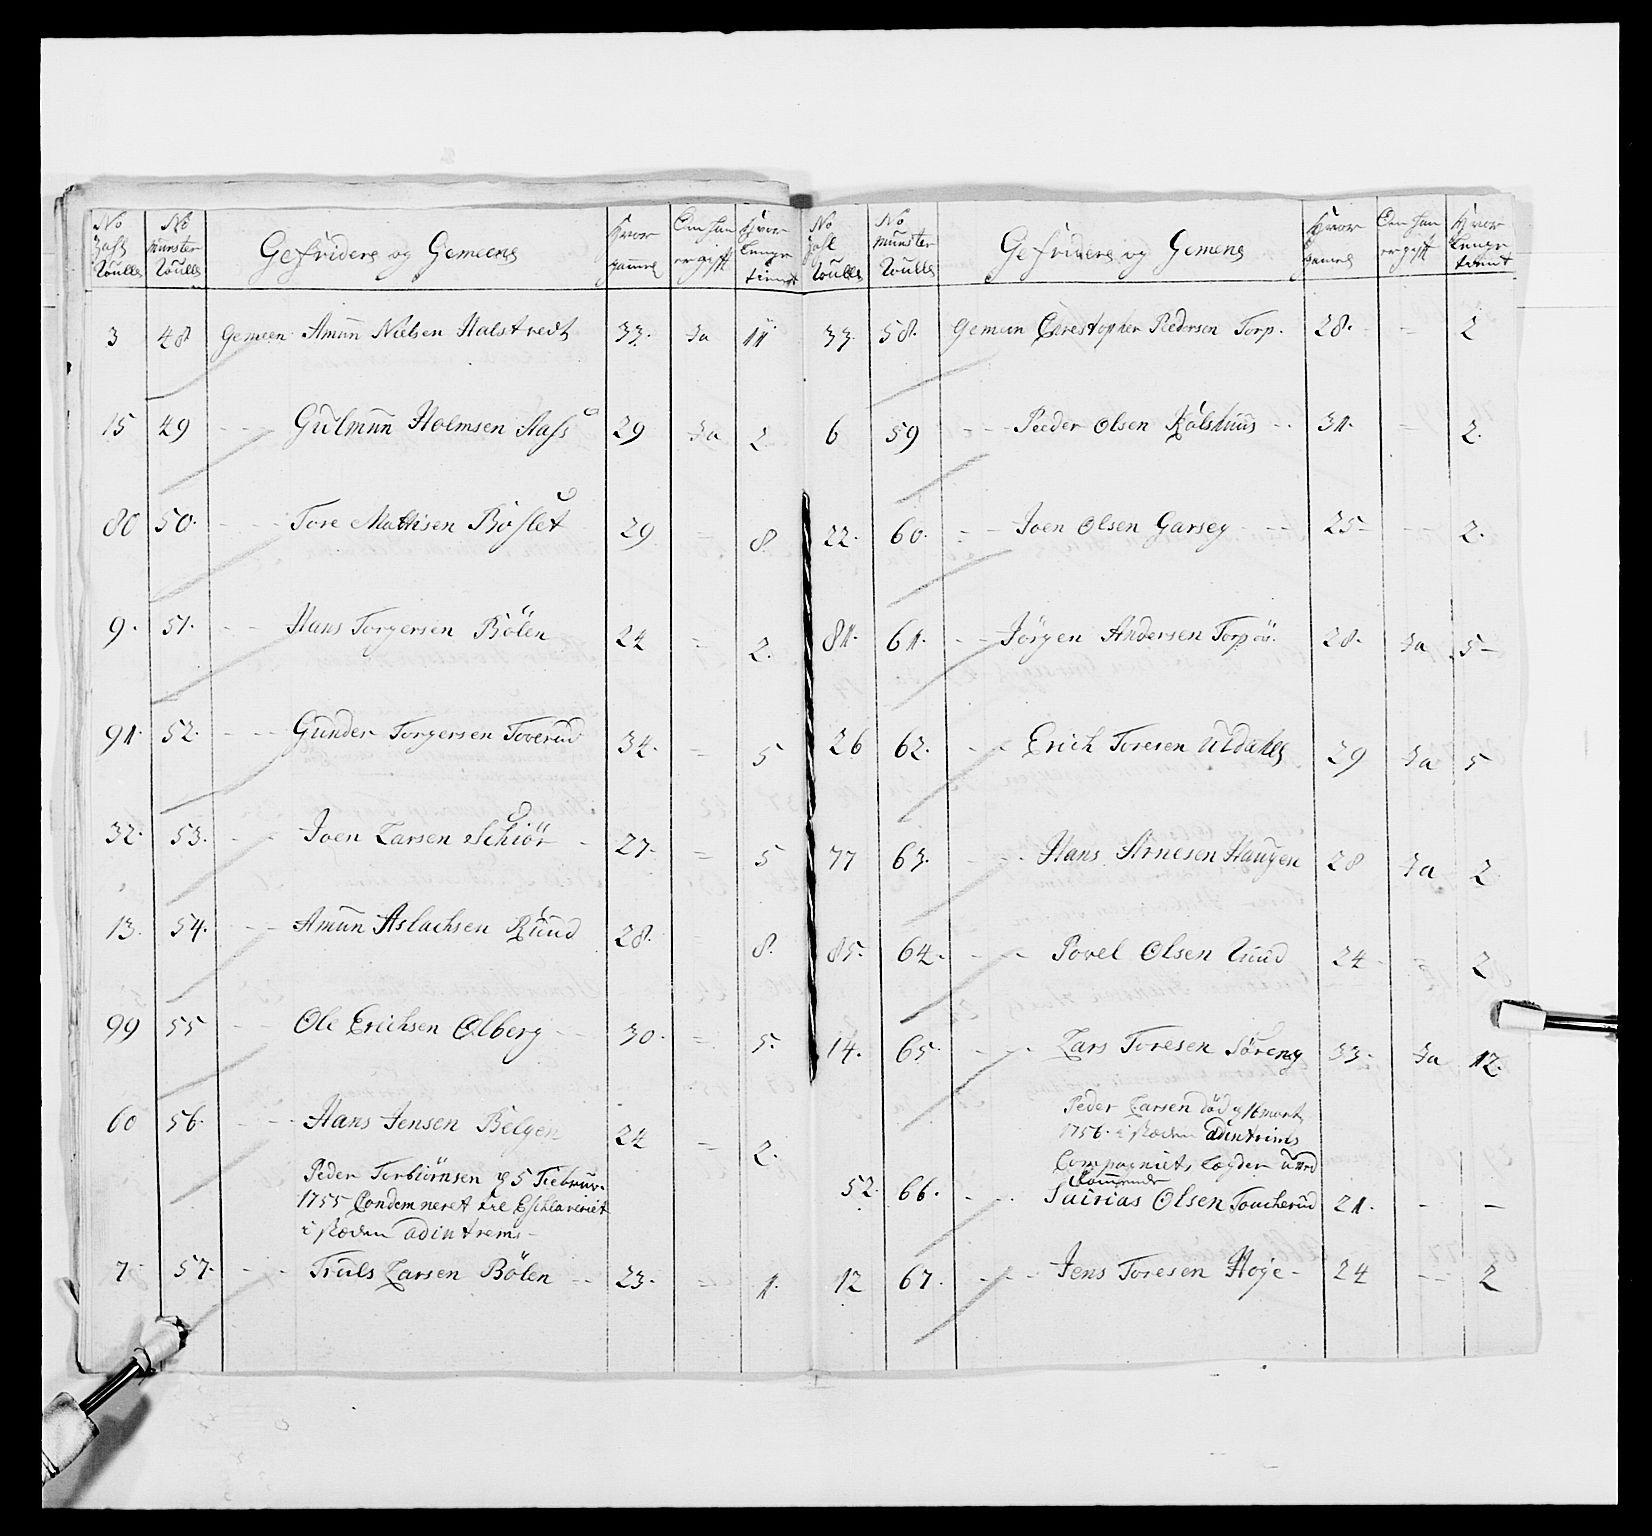 No Zahl Roulle | No Munster Roulle | Gefridere og Gemeene | Hvor gamel | Om han er gift | Hvor lenge tient
3 48 Gemeen Amun Nielsen Halstvedt 33. Ja 11
15 49 - - Gulmun Holmsen Aass 29 Ja 2
80 50. - - Tore Mattisen Böslet 29 - 8
9. 51. - - Hans Torgersen Bölen 24 - 2.
91. 52. - - Gunder Torgersen Toverud 34. - 5
32. 53. - - Joen Larsen Schiör - 27. - 5
13. 54. - - Amun Aslachsen Ruud 28. - 8.
99 55 - - Ole Erichsen Olberg - - 30. - 5.
60 56. - - Hans Jensen Belgen 24 - 2.
Peder Torbiörnsen d 5 Februar.
1755 Condemneret til Eschlaveriet
i steden adintrems -
7. 57. - - Truls Larsen Bölen - - 23. - 1.
No Zahl Roulle | No Munster Roulle | Gefridere og Gemene | Hvor gamel | Om han er gift | Hvor lenge tient
33. 58. Gemeen Chrestopher Pedersen Torp. 28. - 2
6 59 - - Peder Olsen Kolshuus - - 31. - 2.
22. 60. - - Joen Olsen Garseg - - 25 - - - 2.
81. 61. - - Jörgen Andersen Torpöe. 28. Ja 5 -
26 62. - - Erich Toresen Uldahls 29 Ja 5
77 63. - - Hans Arnesen Haugen 28 Ja 2
85. 64. - - Povel Olsen Ruud 24 - - 2
14. 65. - - Lars Toresen Söreng 33. Ja 12.
Peder Larsen död d 16 mart
1756. i steden adintrims
Compagniets Lægder
52. 66. - - Olsen Toucherud 21. - -
12 67. - - - Jens Toresen Hoye - 24 - - 2